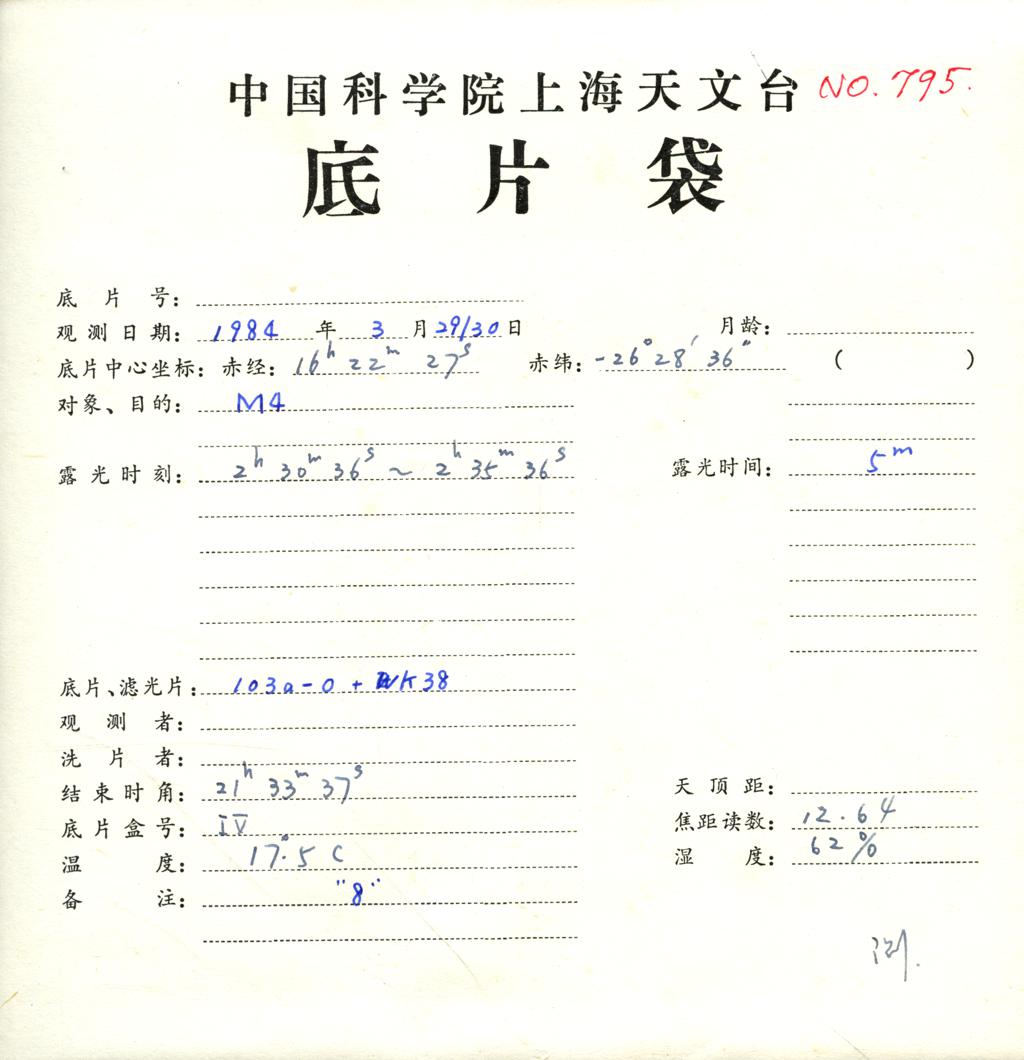 中国科学院上海天文台 NO.795.
底片袋
底片号:
观测日期: 1984 年 3 月 29/30 日 月龄:
底片中心坐标: 赤经: 16h 22m 27s 赤纬: -26° 28′ 36″ ( )
对象、目的: M4
露光时刻: 2h 30m 36s ~ 2h 35m 36s 露光时间: 5m
底片、滤光片: 103a-O + WK38
观测者:
洗片者:
结束时角: 21h 33m 37s 天顶距:
底片盒号: IV 焦距读数: 12.64
温度: 17°.5 C 湿度: 62%
备注: "8"
测.